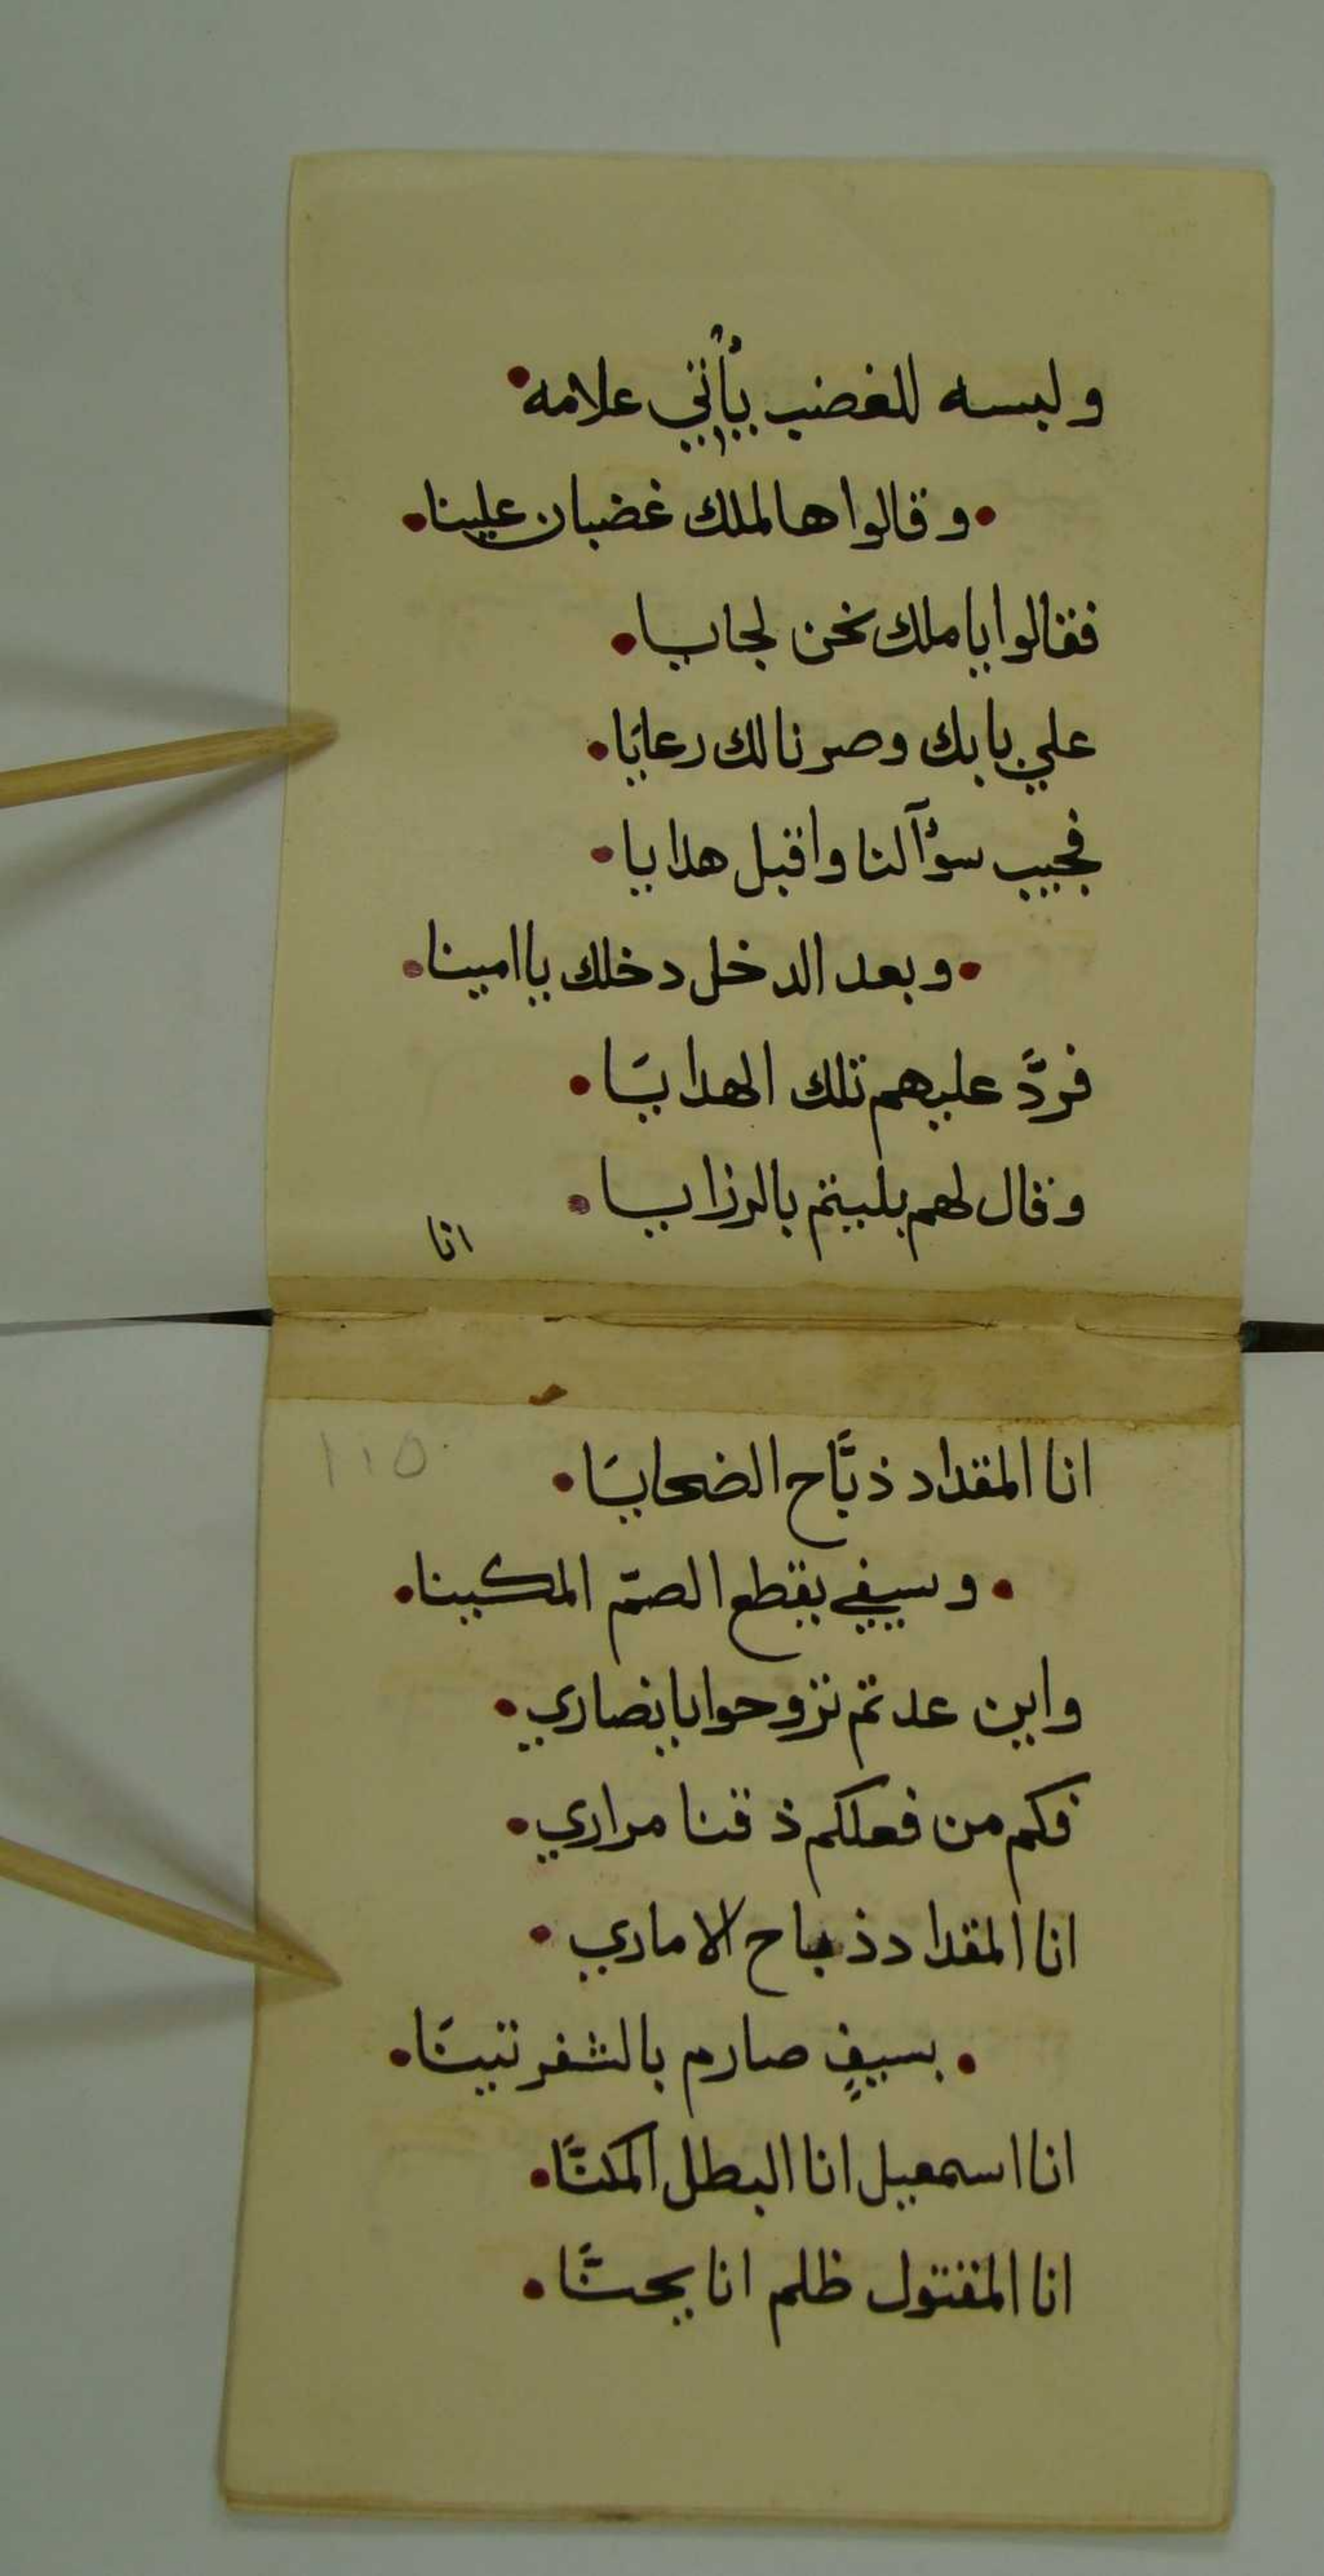 ولبسه للغضب يأتي علامه
وقالوا هالملك غضبان علينا
فقالوا يا ملك نحن لجايا
علي بابك وصرنا لك رعايَا
فجيب سؤآلنا واقبل هدايا
وبعد الدخل دخلك يا امينا
فردَّ عليهم تلك الهدايَا
وقال لهم بليتم بالرزايا
انا
١١٥
انا المقداد ذبَّاح الضحايَا
وسيفي يقطع الصمّ المكينا
واين عدتم تروحوا يا نصاري
فكم من فعلكم ذقنا مراري
انا المقداد ذباح الاماري
بسيفٍ صارم بالشفرتينَا
انا اسمعيل انا البطل المكنَّا
انا المقتول ظلم انا يحنَّا